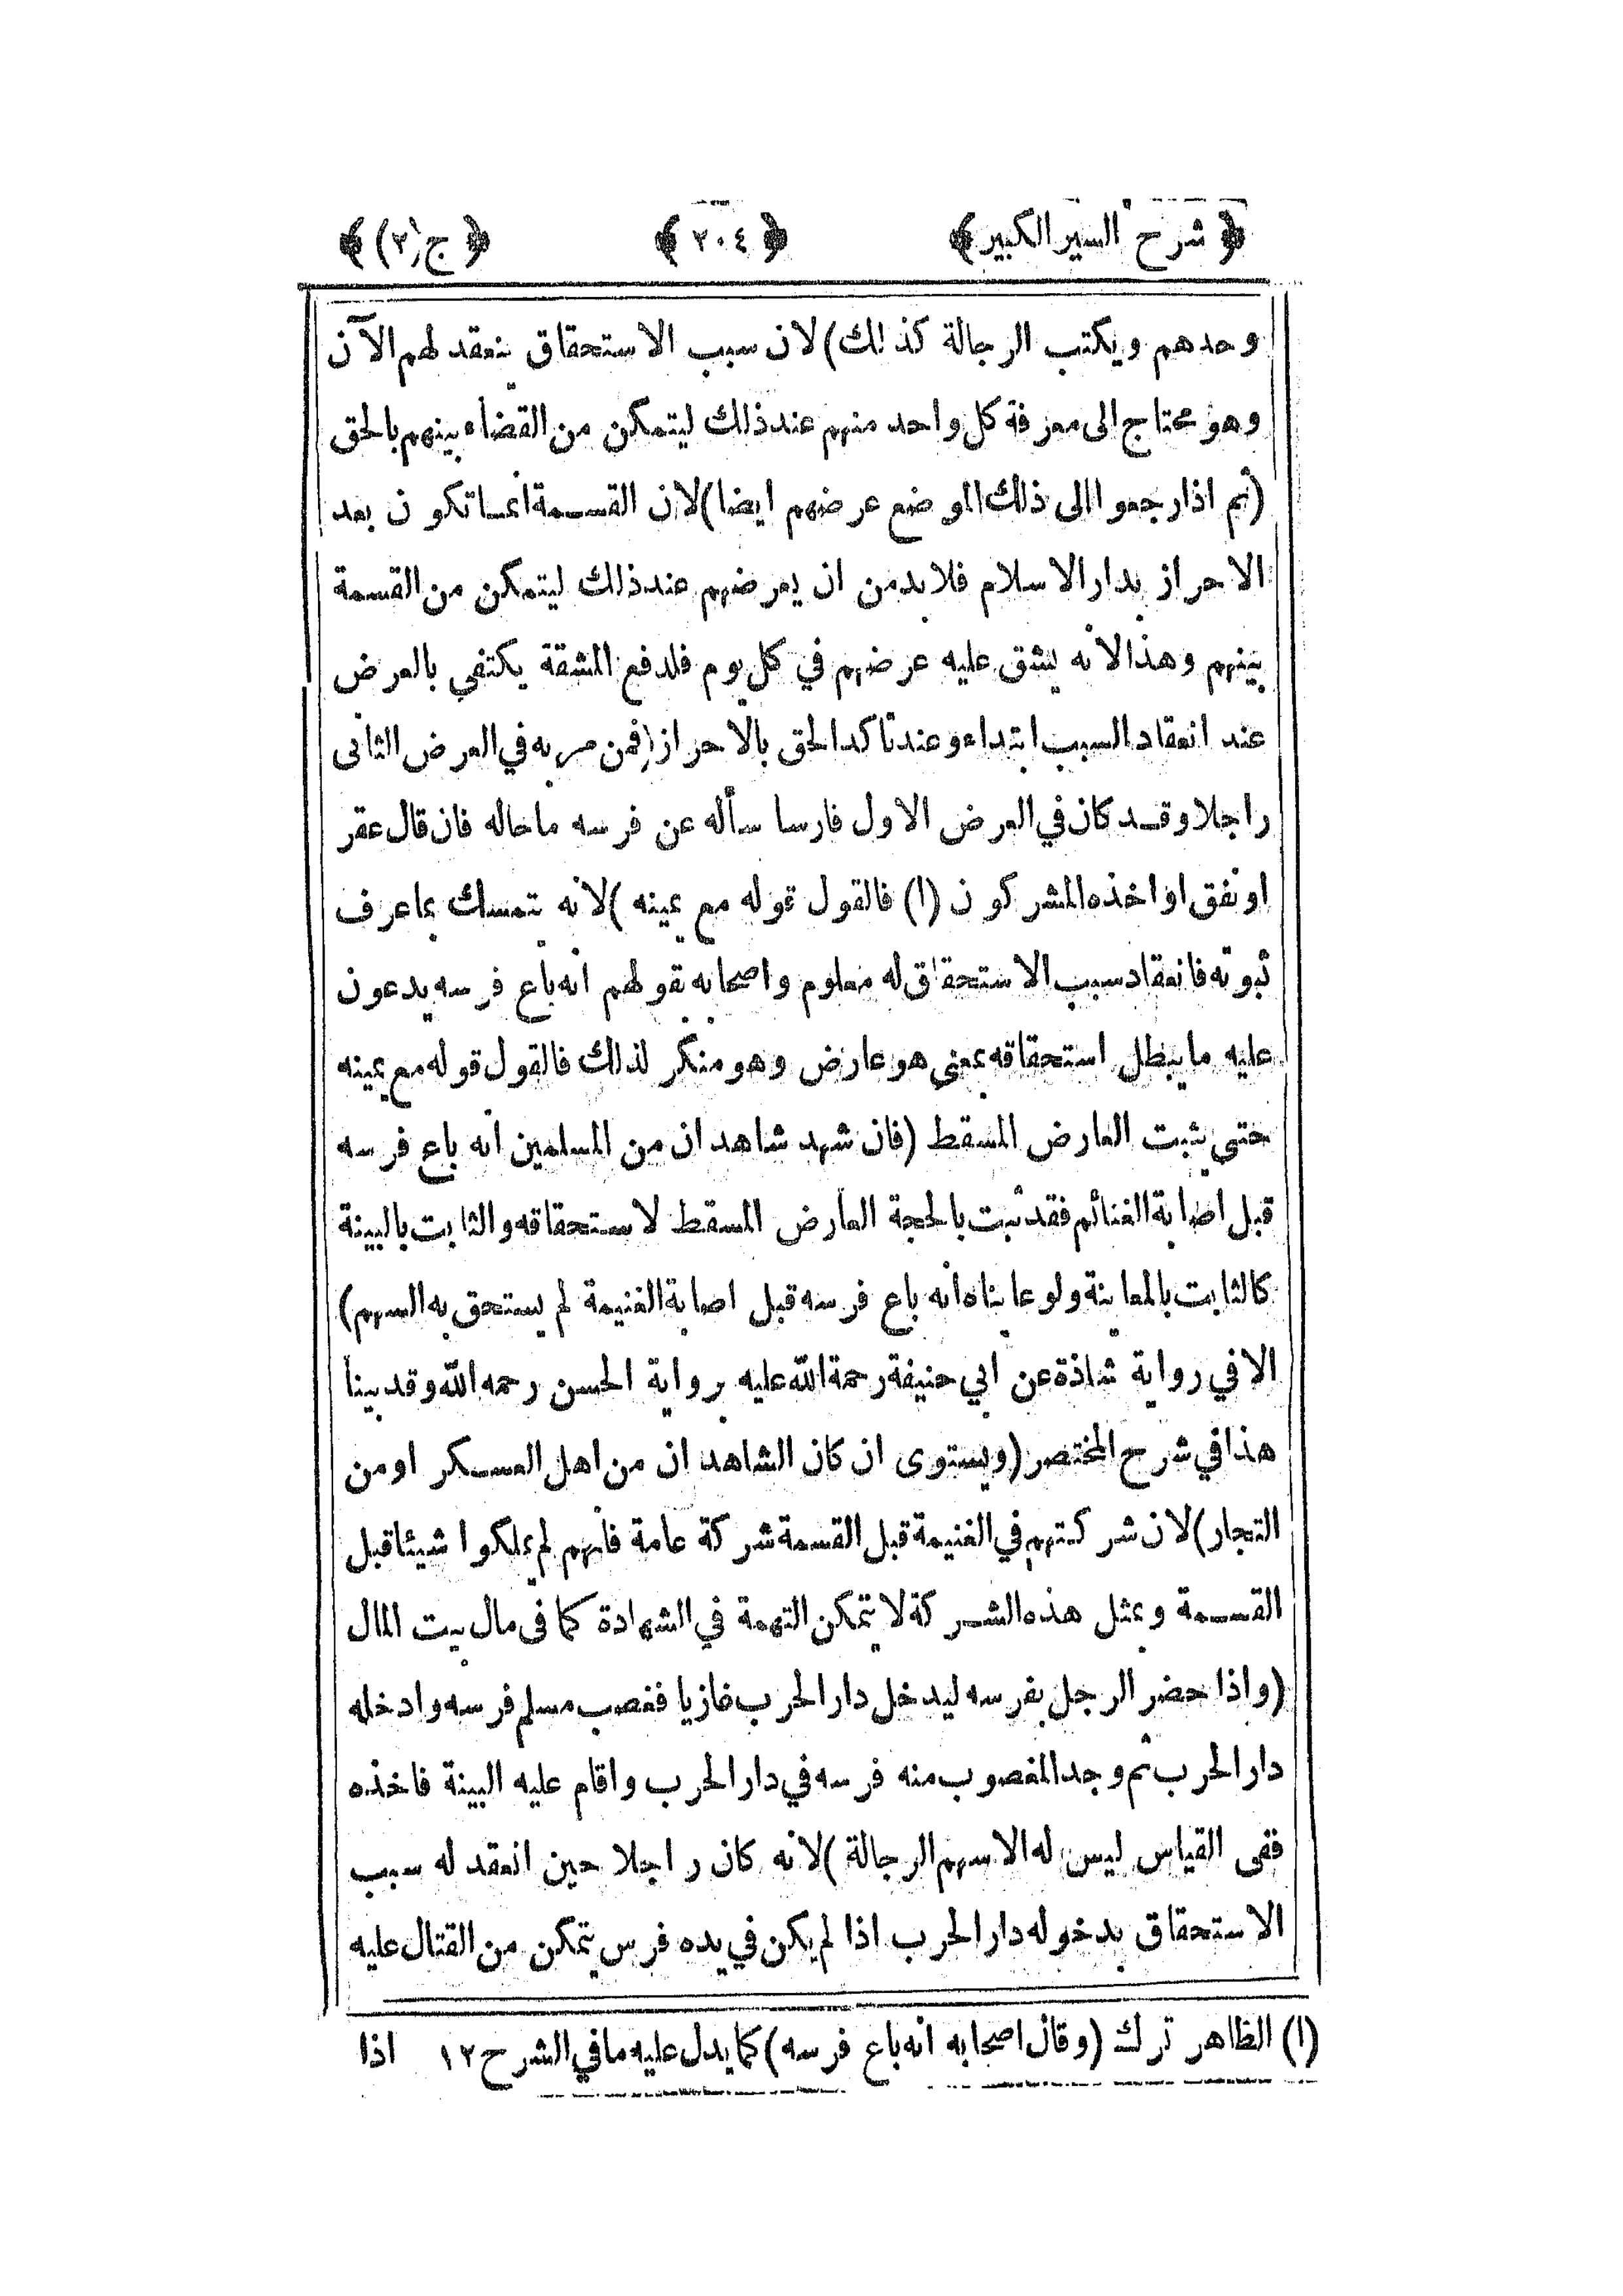 ﴿ شرح السير الكبير ﴾ ﴿ ٢٠٤ ﴾ ﴿ ج (٢) ﴾
وحدهم ويكتب الرجالة كذلك) لان سبب الاستحقاق ينعقد لهم الآن
وهو محتاج الى معرفة كل واحد منهم عند ذلك ليتمكن من القضاء بينهم بالحق
(ثم اذا رجعوا الى ذلك الموضع عرضهم ايضا) لان القسمة انما تكون بعد
الاحراز بدار الاسلام فلا بد من ان يعرضهم عند ذلك ليتمكن من القسمة
بينهم وهذا لانه يشق عليه عرضهم في كل يوم فلدفع المشقة يكتفي بالعرض
عند انعقاد السبب ابتداء وعند تاكد الحق بالاحراز (فمن مر به في العرض الثانى
راجلا وقد كان في العرض الاول فارسا سأله عن فرسه ما حاله فان قال عقر
او نفق او اخذه المشركون (١) فالقول قوله مع يمينه) لانه يتمسك بما عرف
ثبوته فانعقاد سبب الاستحقاق له معلوم واصحابه بقولهم انه باع فرسه يدعون
عليه ما يبطل استحقاقه بمعنى هو عارض وهو منكر لذلك فالقول قوله مع يمينه
حتى يثبت العارض المسقط (فان شهد شاهدان من المسلمين انه باع فرسه
قبل اصابة الغنائم فقد ثبت بالحجة العارض المسقط لاستحقاقه والثابت بالبينة
كالثابت بالمعاينة ولو عايناه انه باع فرسه قبل اصابة الغنيمة لم يستحق به السهم)
الا في رواية شاذة عن ابي حنيفة رحمة الله عليه برواية الحسن رحمه الله وقد بينا
هذا في شرح المختصر (ويستوى ان كان الشاهدان من اهل العسكر او من
التجار) لان شركتهم في الغنيمة قبل القسمة شركة عامة فانهم لم يملكوا شيئا قبل
القسمة وبمثل هذه الشركة لا تتمكن التهمة في الشهادة كما فى مال بيت المال
(واذا حضر الرجل بفرسه ليدخل دار الحرب غازيا فغصب مسلم فرسه وادخله
دار الحرب ثم وجد المغصوب منه فرسه في دار الحرب واقام عليه البينة فاخذه
ففى القياس ليس له الا سهم الرجالة) لانه كان راجلا حين انعقد له سبب
الاستحقاق بدخوله دار الحرب اذا لم يكن في يده فرس يتمكن من القتال عليه
(١) الظاهر ترك (وقال اصحابه انه باع فرسه) كما يدل عليه ما في الشرح ١٢ اذا